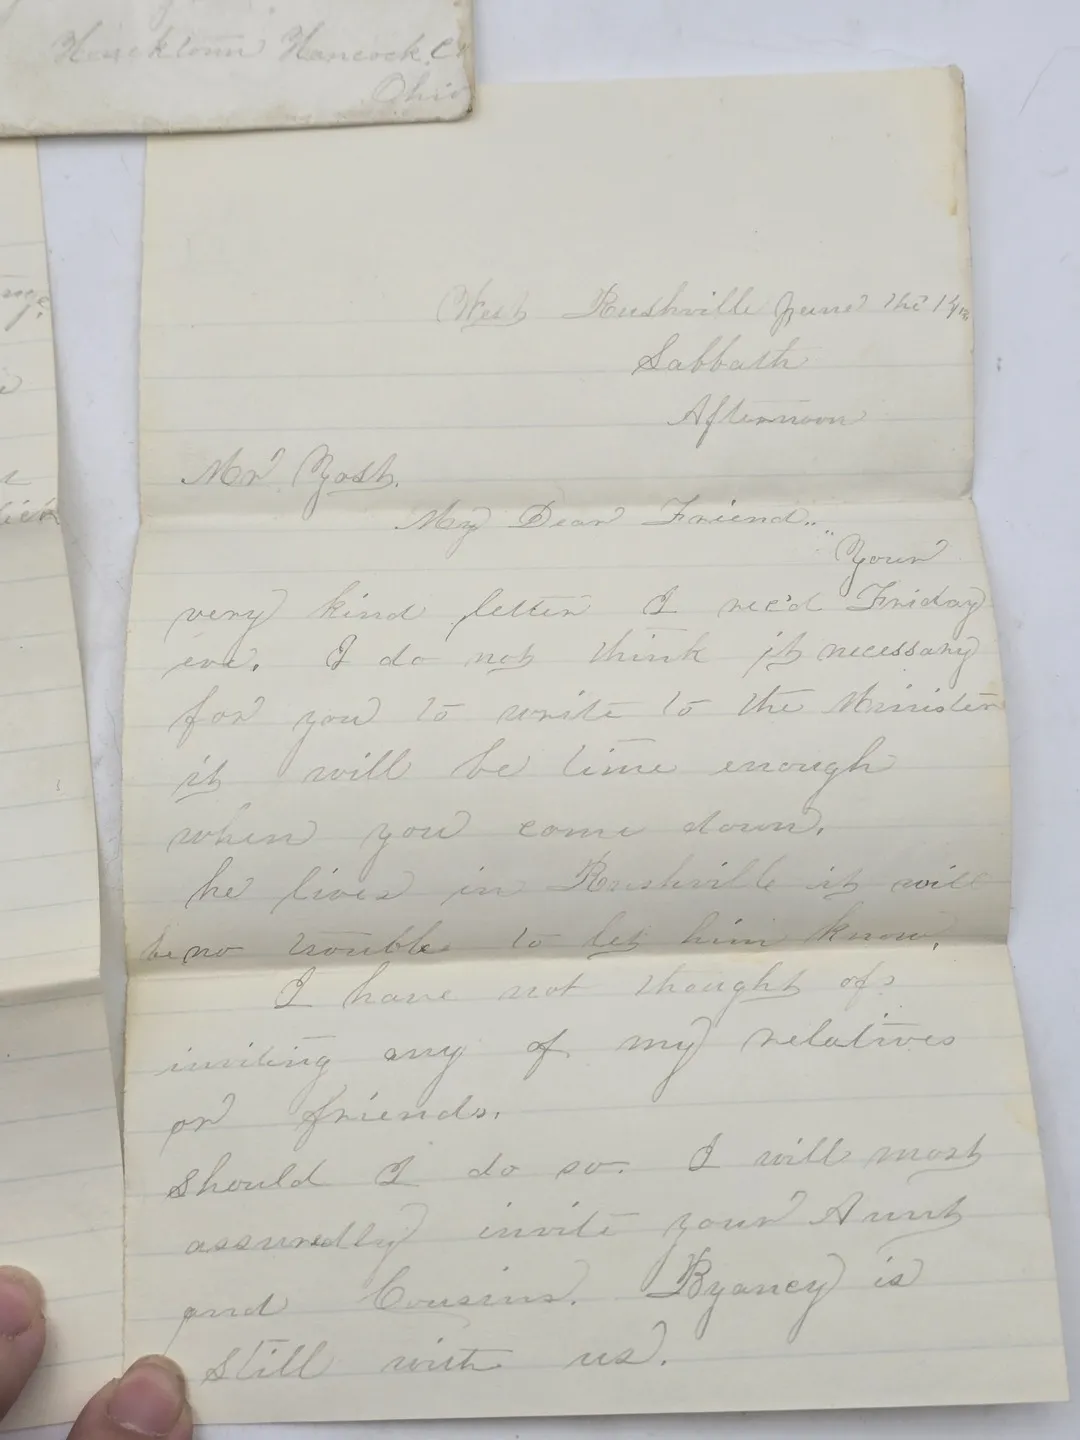 Hancock, Co
Ohio
West Rushville June the 14th
Sabbath
Afternoon
Mr Yost.
My Dear Friend..
"Your
very kind letter I rec'd Friday
eve. I do not think it necessary
for you to write to the Minister
it will be time enough
when you come down.
he lives in Rushville it will
be no trouble to let him know.
I have not thought of
inviting any of my relatives
or friends.
should I do so. I will most
assuredly invite your Aunt
and Cousins. Byancy is
still with us.